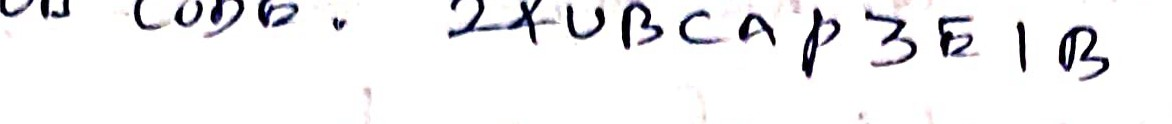 CODE. 2XUBCAP3E1B